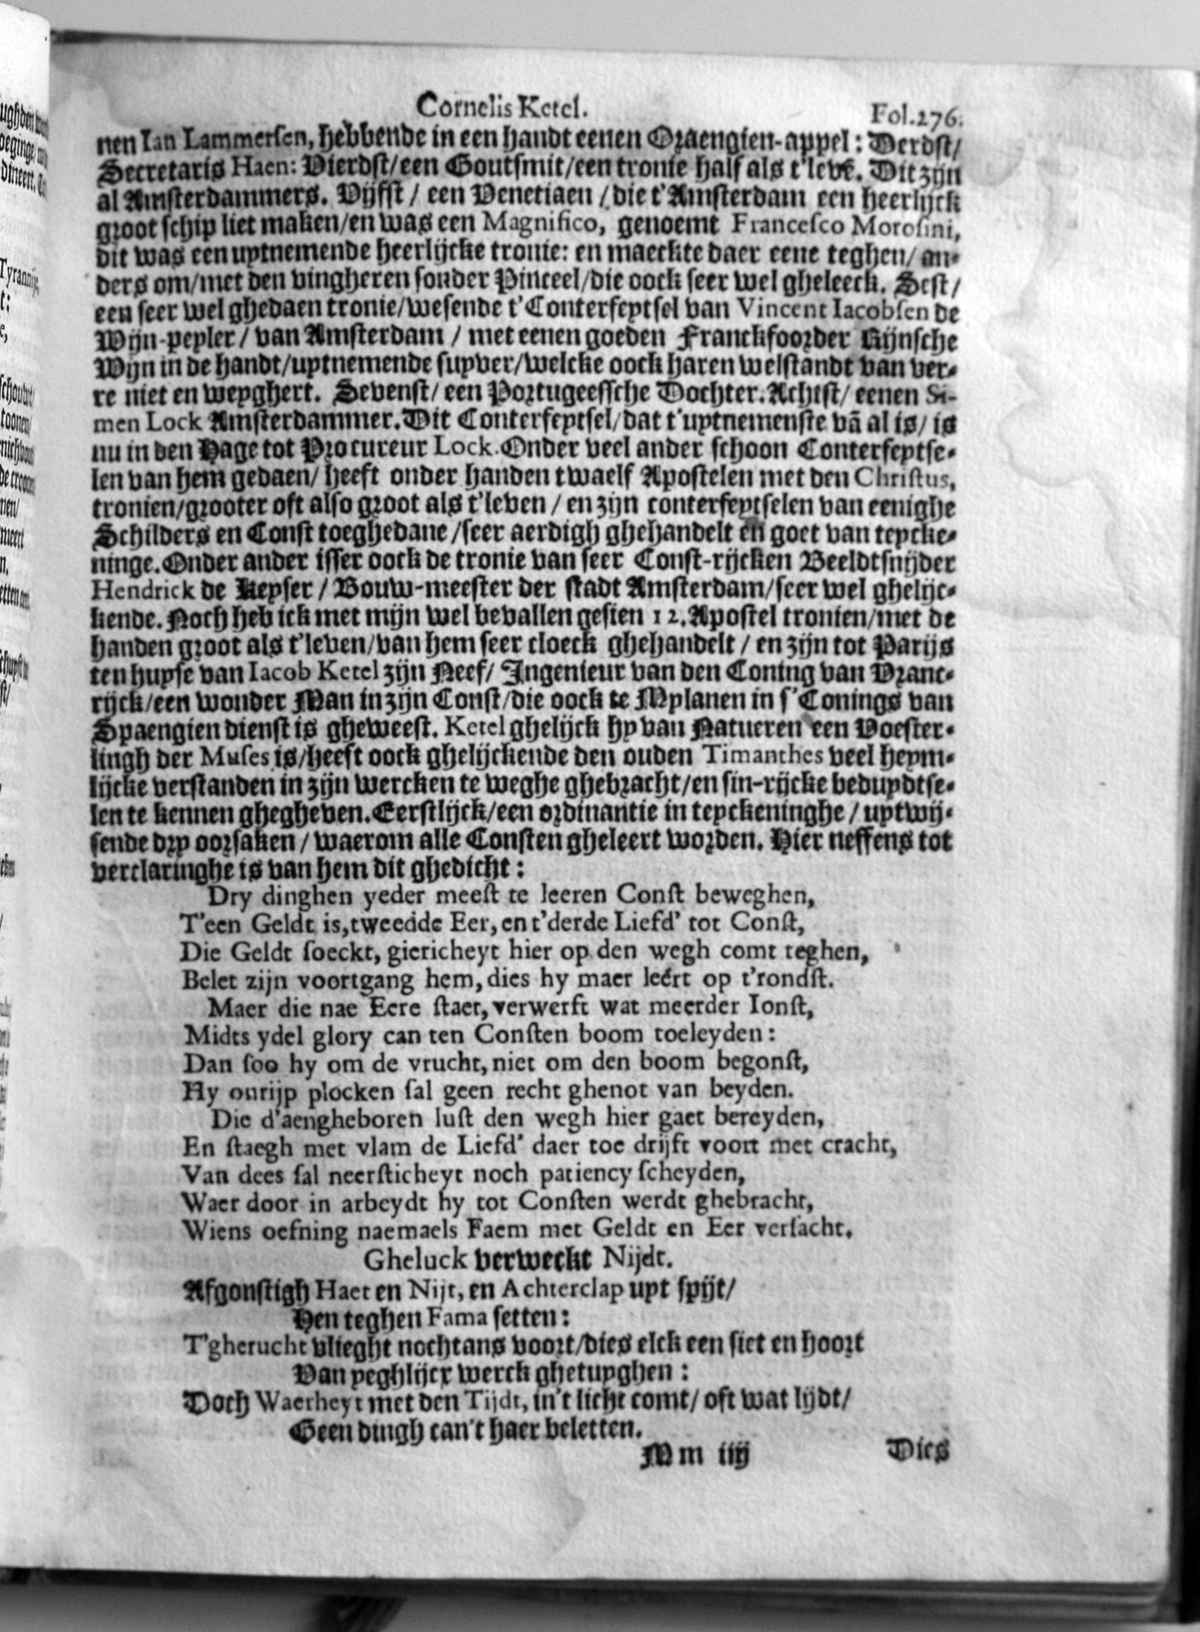 Cornelis Ketel. Fol.276.
nen Ian Lammersen, hebbende in een handt eenen Oraengien-appel: Derdst/
Secretaris Haen: Vierdst/een Goutsmit/een tronie half als t'levē. Dit zijn
al Amsterdammers. Vijfst / een Venetiaen / die t'Amsterdam een heerlijck
groot schip liet maken/en was een Magnifico, genoemt Francesco Morosini,
dit was een uytnemende heerlijcke tronie: en maeckte daer eene teghen/ an-
ders om/met den vingheren sonder Pinceel/die oock seer wel gheleeck. Sest/
een seer wel ghedaen tronie/wesende t'Conterfeytsel van Vincent Iacobsen de
Wijn-peyler / van Amsterdam / met eenen goeden Franckfoorder Rijnsche
Wijn in de handt/uytnemende suyver/welcke oock haren welstandt van ver-
re niet en weyghert. Sevenst/ een Portugeessche Dochter. Achtst/ eenen Si-
men Lock Amsterdammer. Dit Conterfeytsel/dat t'uytnemenste vā al is/ is
nu in den Hage tot Procureur Lock. Onder veel ander schoon Conterfeytse-
len van hem gedaen/ heeft onder handen twaelf Apostelen met den Christus,
tronien/grooter oft also groot als t'leven / en zijn conterfeytselen van eenighe
Schilders en Const toeghedane /seer aerdigh ghehandelt en goet van teycke-
ninge. Onder ander isser oock de tronie van seer Const-rijcken Beeldtsnijder
Hendrick de Keyser / Bouw-meester der stadt Amsterdam/seer wel ghelijc-
kende. Noch heb ick met mijn wel bevallen gesien 12. Apostel tronien/met de
handen groot als t'leven/van hem seer cloeck ghehandelt / en zijn tot Parijs
ten huyse van Iacob Ketel zijn Neef/ Ingenieur van den Coning van Vranc-
rijck/een wonder Man in zijn Const/die oock te Mylanen in s'Conings van
Spaengien dienst is gheweest. Ketel ghelijck hy van Natueren een Voester-
lingh der Muses is/heeft oock ghelijckende den ouden Timanthes veel heym-
lijcke verstanden in zijn wercken te weghe ghebracht/en sin-rijcke beduydtse-
len te kennen ghegheven. Eerstlijck/een ordinantie in teyckeninghe / uytwij-
sende dry oorsaken / waerom alle Consten gheleert worden. Hier neffens tot
verclaringhe is van hem dit ghedicht:
Dry dinghen yeder meest te leeren Const beweghen,
T'een Geldt is, tweedde Eer, en t'derde Liefd' tot Const,
Die Geldt soeckt, giericheyt hier op den wegh comt teghen,
Belet zijn voortgang hem, dies hy maer leert op t'rondst.
Maer die nae Eere staet, verwerft wat meerder Ionst,
Midts ydel glory can ten Consten boom toeleyden:
Dan soo hy om de vrucht, niet om den boom begonst,
Hy onrijp plocken sal geen recht ghenot van beyden.
Die d'aengheboren lust den wegh hier gaet bereyden,
En staegh met vlam de Liefd' daer toe drijft voort met cracht,
Van dees sal neersticheyt noch patiency scheyden,
Waer door in arbeydt hy tot Consten werdt ghebracht,
Wiens oefning naemaels Faem met Geldt en Eer versacht.
Gheluck verweckt Nijdt.
Afgonstigh Haet en Nijt, en Achterclap uyt spijt/
Hen teghen Fama setten:
T'gherucht vlieght nochtans voort/dies elck een siet en hoort
Van yeghlijcx werck ghetuyghen:
Doch Waerheyt met den Tijdt, in't licht comt/ oft wat lijdt/
Geen dingh can't haer beletten.
Mm iiij Dies